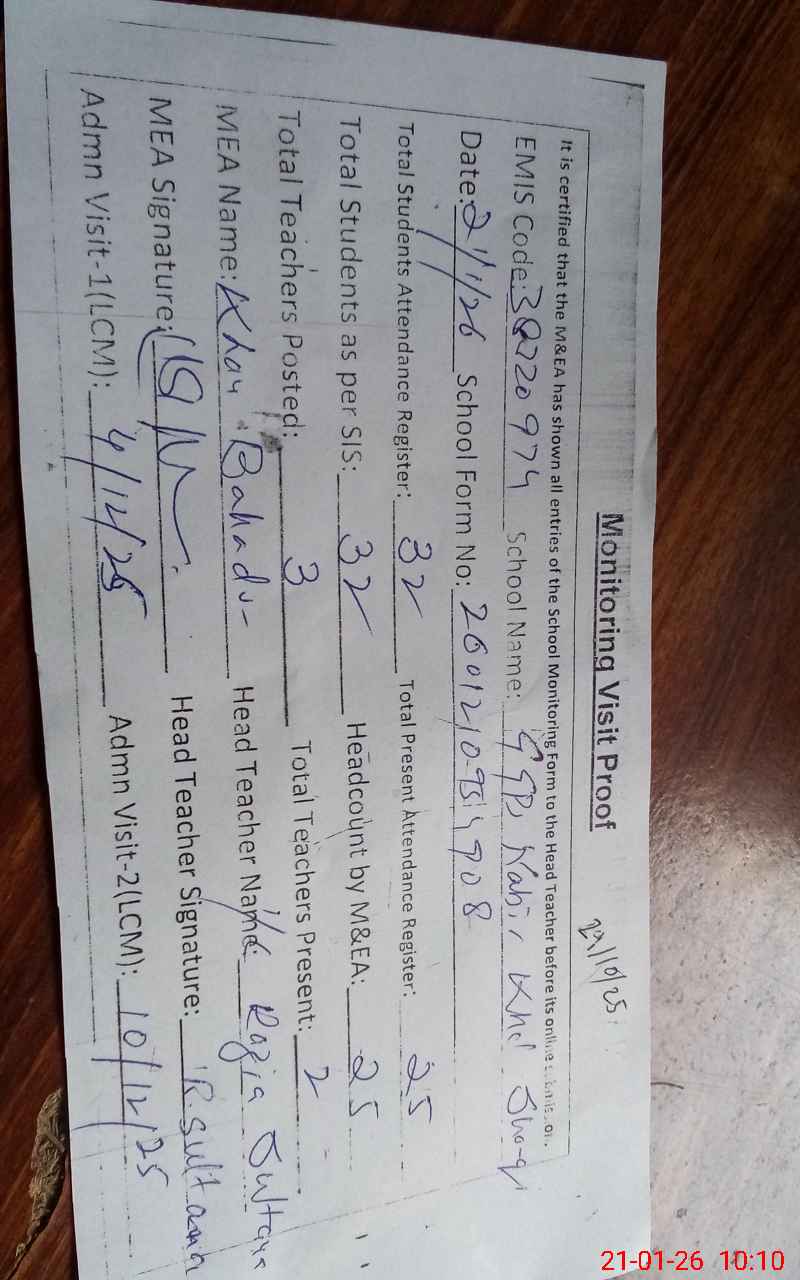 Monitoring Visit Proof
29/10/25
It is certified that the M&EA has shown all entries of the School Monitoring Form to the Head Teacher before its online
EMIS Code: 38720974 School Name: GGPS Kabir Khel Shoqi
Date: 21/1/26 School Form No: 26012109514908
Total Students Attendance Register: 32 Total Present Attendance Register: 25
Total Students as per SIS: 32 Headcount by M&EA: 25
Total Teachers Posted: 3 Total Teachers Present: 2
MEA Name: Khan Bahadur Head Teacher Name: Razia Sultana
MEA Signature: Head Teacher Signature: R.Sultana
Admn Visit-1(LCM): 4/12/25 Admn Visit-2(LCM): 10/12/25
21-01-26 10:10